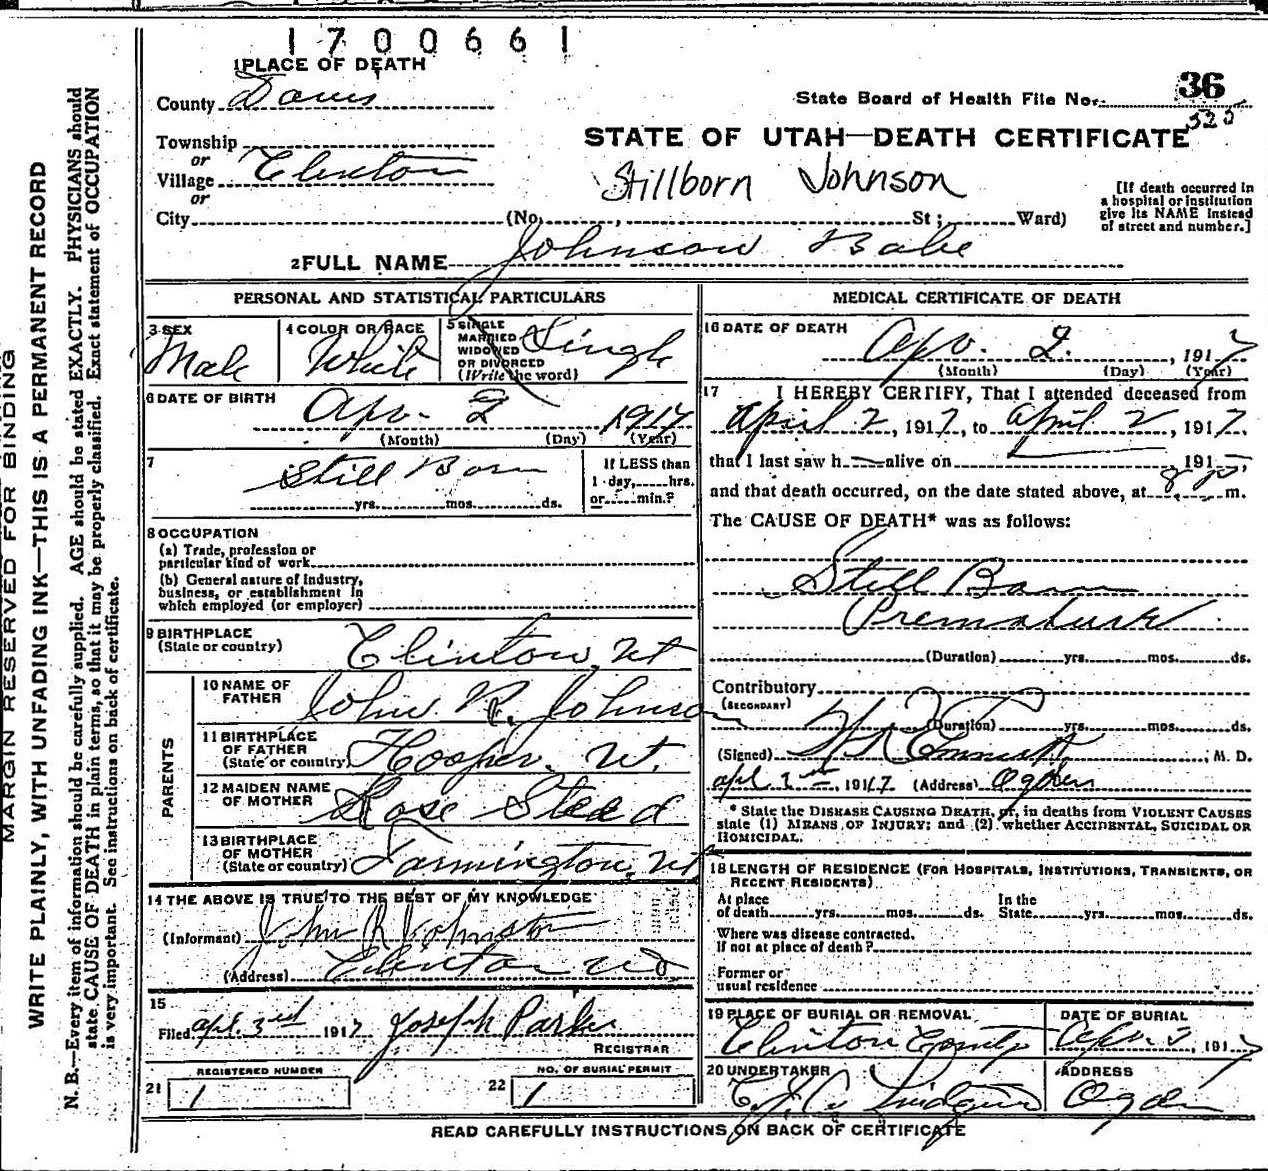 1700661
1 PLACE OF DEATH
County Davis
State Board of Health File No. 36
525
Township
or
Village Clinton
or
STATE OF UTAH—DEATH CERTIFICATE
Stillborn Johnson
[If death occurred in
a hospital or institution
give its NAME instead
of street and number.]
City (No. , St; Ward)
2 FULL NAME Johnson Babe
PERSONAL AND STATISTICAL PARTICULARS
3 SEX
Male
4 COLOR OR RACE
White
5 SINGLE
MARRIED
WIDOWED
OR DIVORCED
(Write the word)
Single
6 DATE OF BIRTH
Apr. 2 1917
(Month) (Day) (Year)
7
Still Born
yrs. mos. ds.
If LESS than
1 day, hrs.
or min.?
8 OCCUPATION
(a) Trade, profession or
particular kind of work
(b) General nature of industry,
business, or establishment in
which employed (or employer)
9 BIRTHPLACE
(State or country) Clinton, Ut
PARENTS
10 NAME OF
FATHER John R. Johnson
11 BIRTHPLACE
OF FATHER
(State or country) Hooper, Ut.
12 MAIDEN NAME
OF MOTHER Rose Steed
13 BIRTHPLACE
OF MOTHER
(State or country) Farmington, Ut
14 THE ABOVE IS TRUE TO THE BEST OF MY KNOWLEDGE
(Informant) John R Johnston
(Address) Clinton
15
Filed Apl. 3rd 1917 Joseph Parker
REGISTRAR
REGISTERED NUMBER
21 1
NO. OF BURIAL PERMIT
22 1
MEDICAL CERTIFICATE OF DEATH
16 DATE OF DEATH
Apr. 2. , 1917
(Month) (Day) (Year)
17 I HEREBY CERTIFY, That I attended deceased from
April 2, 1917, to April 2, 1917,
that I last saw h alive on 191
and that death occurred, on the date stated above, at 8 P. m.
The CAUSE OF DEATH* was as follows:
Still Born
Premature
(Duration) yrs. mos. ds.
Contributory
(SECONDARY)
(Duration) yrs. mos. ds.
(Signed) Emmett, M. D.
Apl 2nd, 1917 (Address) Ogden
* State the DISEASE CAUSING DEATH, or, in deaths from VIOLENT CAUSES
state (1) MEANS OF INJURY; and (2) whether ACCIDENTAL, SUICIDAL OR
HOMICIDAL.
18 LENGTH OF RESIDENCE (FOR HOSPITALS, INSTITUTIONS, TRANSIENTS, OR
RECENT RESIDENTS)
At place
of death yrs. mos. ds.
In the
State yrs. mos. ds.
Where was disease contracted,
if not at place of death?
Former or
usual residence
19 PLACE OF BURIAL OR REMOVAL
Clinton
DATE OF BURIAL
Apr. 3, 1917
20 UNDERTAKER
Lindquist
ADDRESS
Ogden
READ CAREFULLY INSTRUCTIONS ON BACK OF CERTIFICATE
MARGIN RESERVED FOR BINDING
WRITE PLAINLY, WITH UNFADING INK—THIS IS A PERMANENT RECORD
N. B.—Every item of information should be carefully supplied. AGE should be stated EXACTLY. PHYSICIANS should
state CAUSE OF DEATH in plain terms, so that it may be properly classified. Exact statement of OCCUPATION
is very important. See instructions on back of certificate.